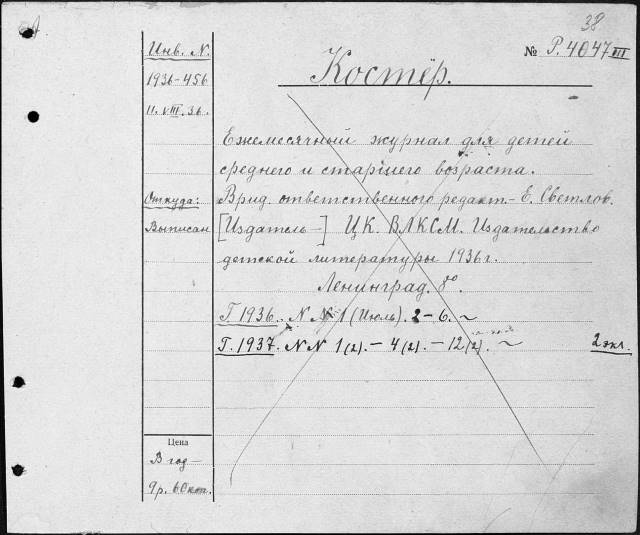 38
Инв. N.
№ Р.4047 III
1936-456
Костёр.
11. VIII. 36.
Ежемесячный журнал для детей
среднего и старшего возраста.
Откуда:
Врид. ответственного редакт. - Е. Светлов.
Выписан
[Издатель -] ЦК. ВЛКСМ. Издательство
детской литературы 1936 г.
Ленинград. 8°.
Г. 1936. N N 1 (Июль). 2 - 6. ~
Г. 1937. N N 1 (2). - 4 (2). - 12 (2). ~ 2 экз.
Цена
В год -
9 р. 60 коп.